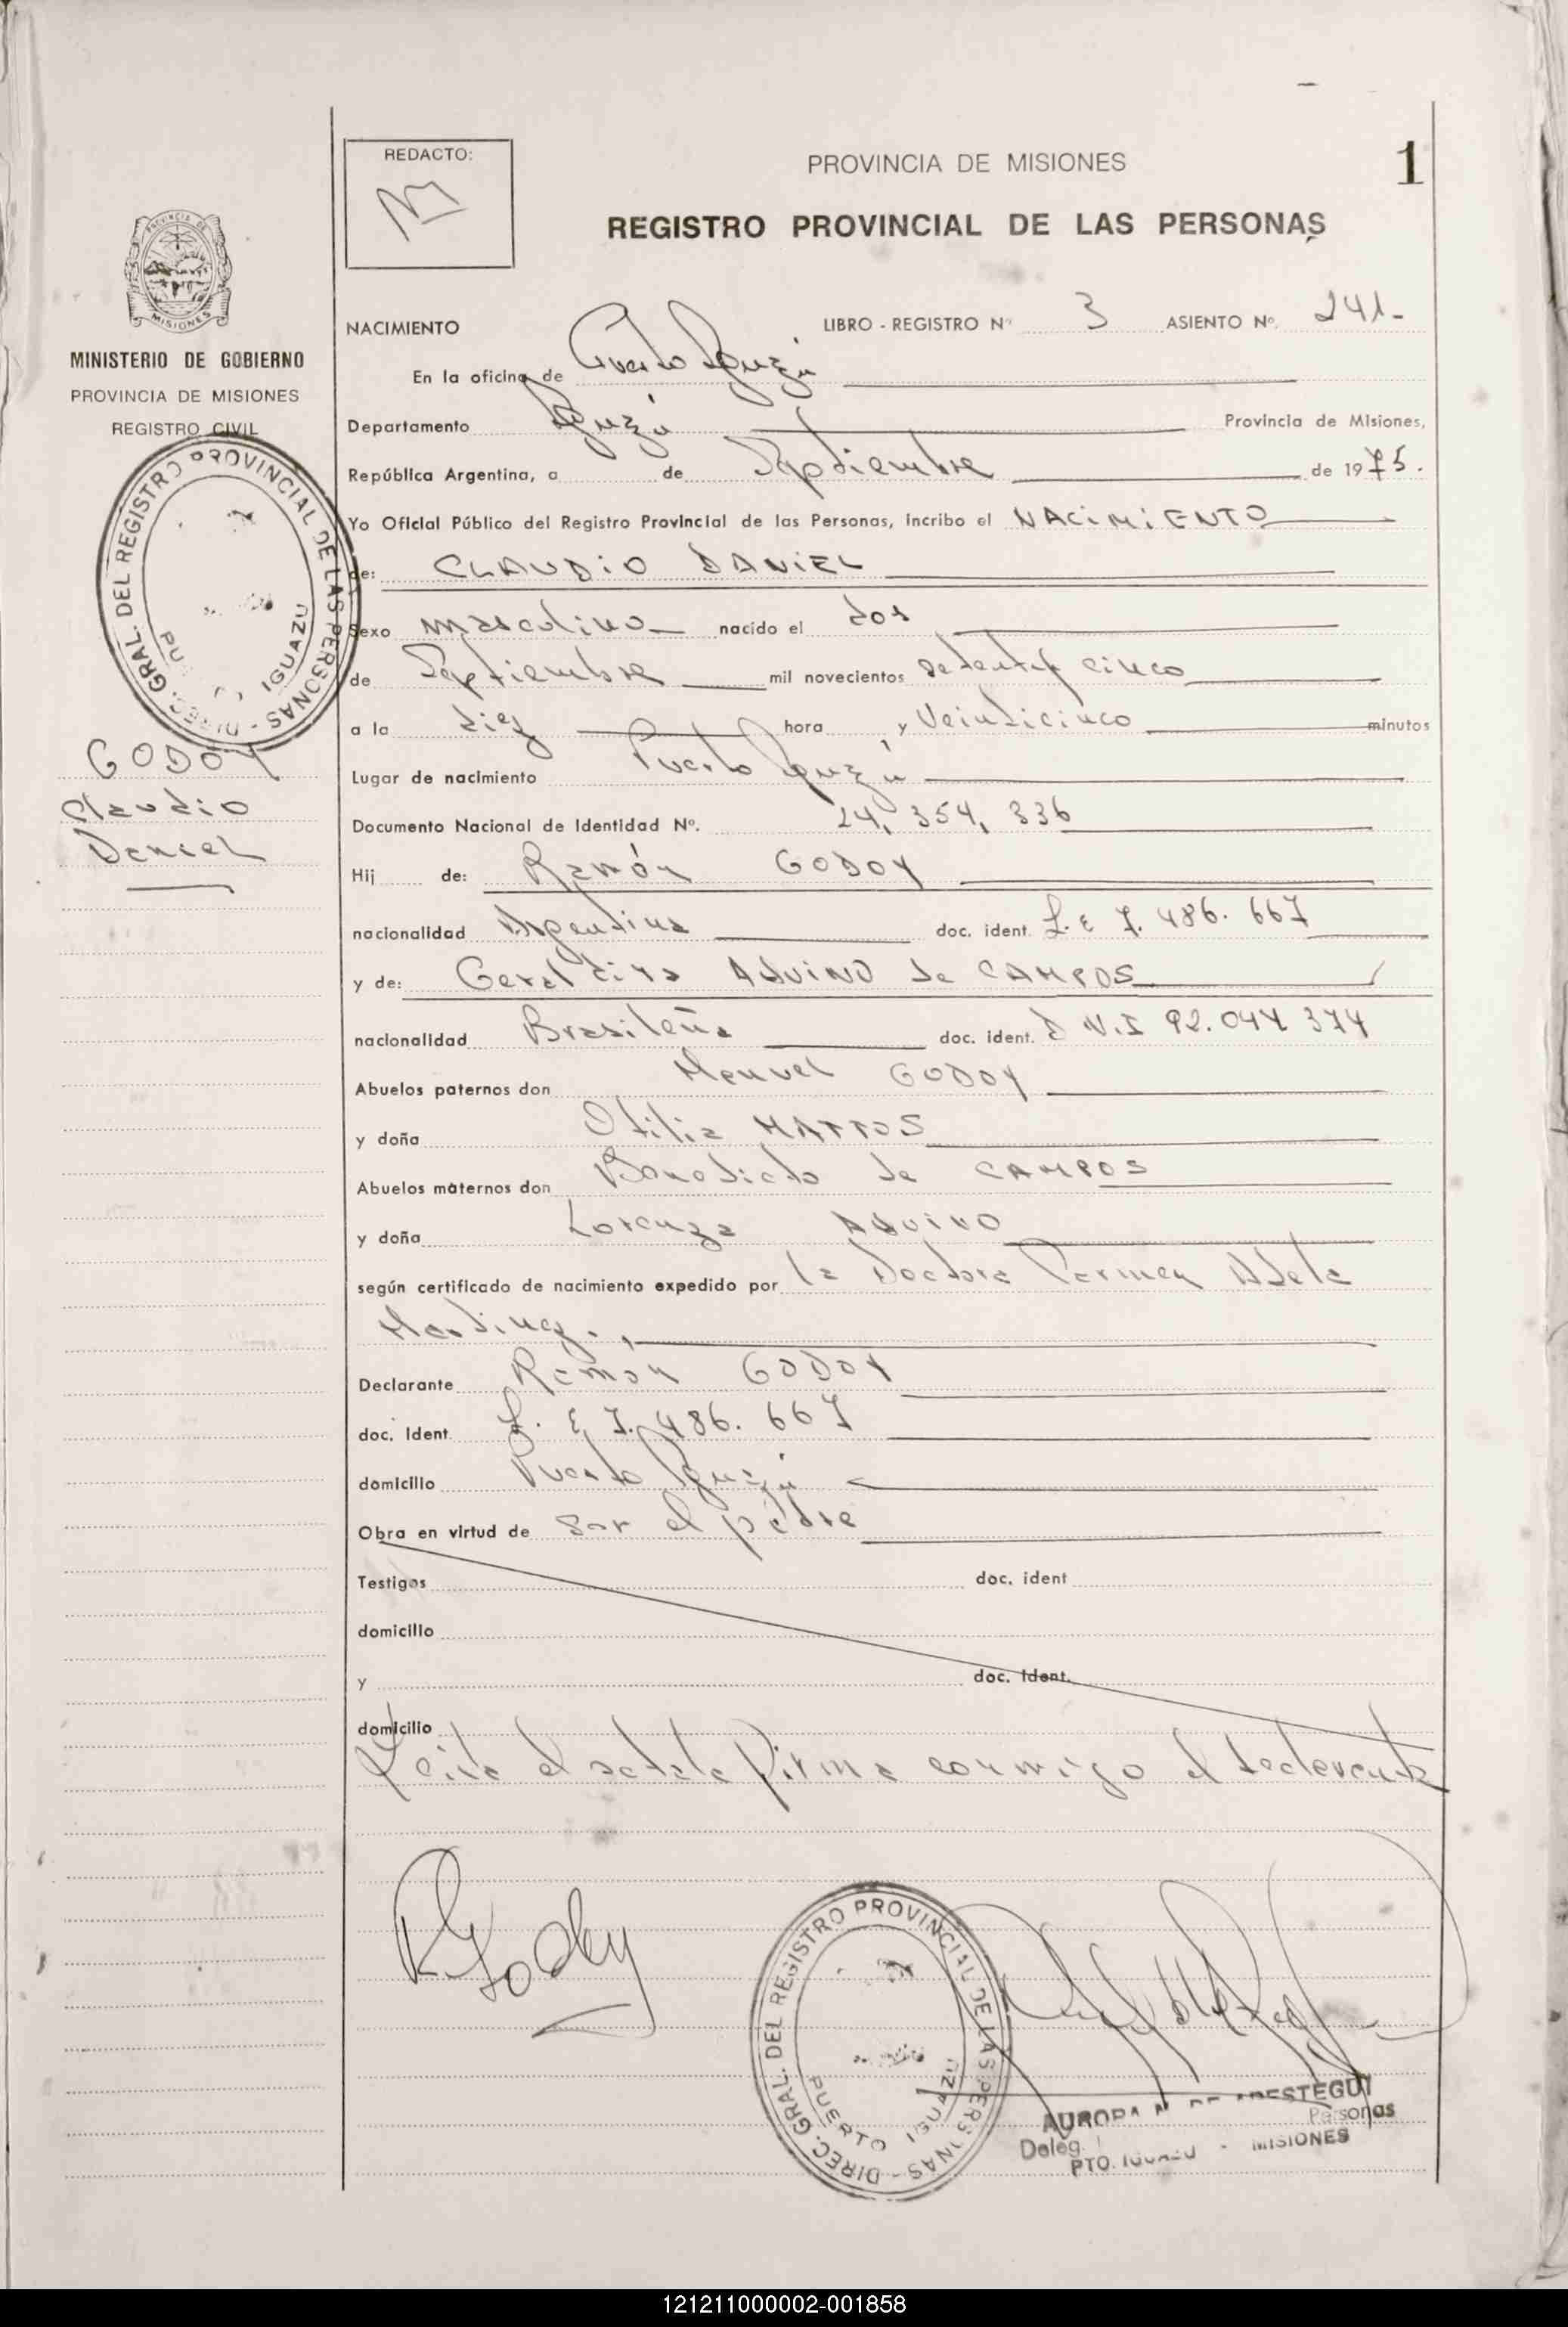 REDACTO:
PROVINCIA DE MISIONES
1
REGISTRO PROVINCIAL DE LAS PERSONAS
PROVINCIA DE
MISIONES
MINISTERIO DE GOBIERNO
PROVINCIA DE MISIONES
REGISTRO CIVIL
DIREC. GRAL. DEL REGISTRO PROVINCIAL DE LAS PERSONAS -
IGUAZU
GODOY
Claudio
Daniel
NACIMIENTO LIBRO - REGISTRO Nº 3 ASIENTO Nº. 241-
En la oficina de Puerto Iguazú
Departamento Iguazú Provincia de Misiones,
República Argentina, a de Septiembre de 1975.
Yo Oficial Público del Registro Provincial de las Personas, incribo el NACIMIENTO
de: CLAUDIO DANIEL
Sexo masculino nacido el dos
de Septiembre mil novecientos setenta y cinco
a la diez hora y Veinticinco minutos
Lugar de nacimiento Puerto Iguazú
Documento Nacional de Identidad Nº. 24, 354, 336
Hij de: Ramón GODOY
nacionalidad Argentina doc. ident. L. E 7. 486. 667
y de: Geraldina AQUINO de CAMPOS
nacionalidad Brasileña doc. ident. D N.I 92.044 374
Abuelos paternos don Manuel GODOY
y doña Otilia MATTOS
Abuelos maternos don Benedicto de CAMPOS
y doña Lorenza AQUINO
según certificado de nacimiento expedido por la Doctora Carmen Adela
Martinez.
Declarante Ramón GODOY
doc. Ident. L. E 7. 486. 667
domicilio Puerto Iguazú
Obra en virtud de ser el padre
Testigos doc. ident
domicilio
y doc. Ident.
domicilio
Leida el acta la firma conmigo el declarante
R Godoy
DIREC. GRAL. DEL REGISTRO PROVINCIAL DE LAS PERSONAS -
PUERTO IGUAZU
AURORA
Personas
Deleg.
PTO. IGUAZU - MISIONES
121211000002-001858